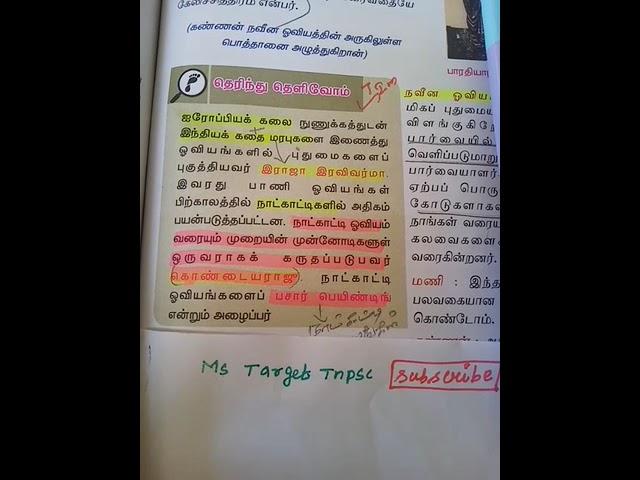 கேலிச்சித்திரம் என்பர்.
(கண்ணன் நவீன ஓவியத்தின் அருகிலுள்ள
பொத்தானை அழுத்துகிறான்)
தெரிந்து தெளிவோம்
ஐரோப்பியக் கலை நுணுக்கத்துடன்
இந்தியக் கதை மரபுகளை இணைத்து
ஓவியங்களில் புதுமைகளைப்
புகுத்தியவர் இராஜா இரவிவர்மா.
இவரது பாணி ஓவியங்கள்
பிற்காலத்தில் நாட்காட்டிகளில் அதிகம்
பயன்படுத்தப்பட்டன. நாட்காட்டி ஓவியம்
வரையும் முறையின் முன்னோடிகளுள்
ஒருவராகக் கருதப்படுபவர்
கொண்டையராஜு. நாட்காட்டி
ஓவியங்களைப் பசார் பெயிண்டிங்
என்றும் அழைப்பர்
நவீன ஓவிய
மிகப் புதுமைய
விளங்குகிறே
பார்வையில்
வெளிப்படுமாறு
பார்வையாளர்
ஏற்பப் பொரு
கோடுகளாக
நாங்கள் வரைய
கலவைகளை
வரைகின்றனர்.
மணி : இந்த
பலவகையான
கொண்டோம்.
Ms Targets TNPSC Subscribe